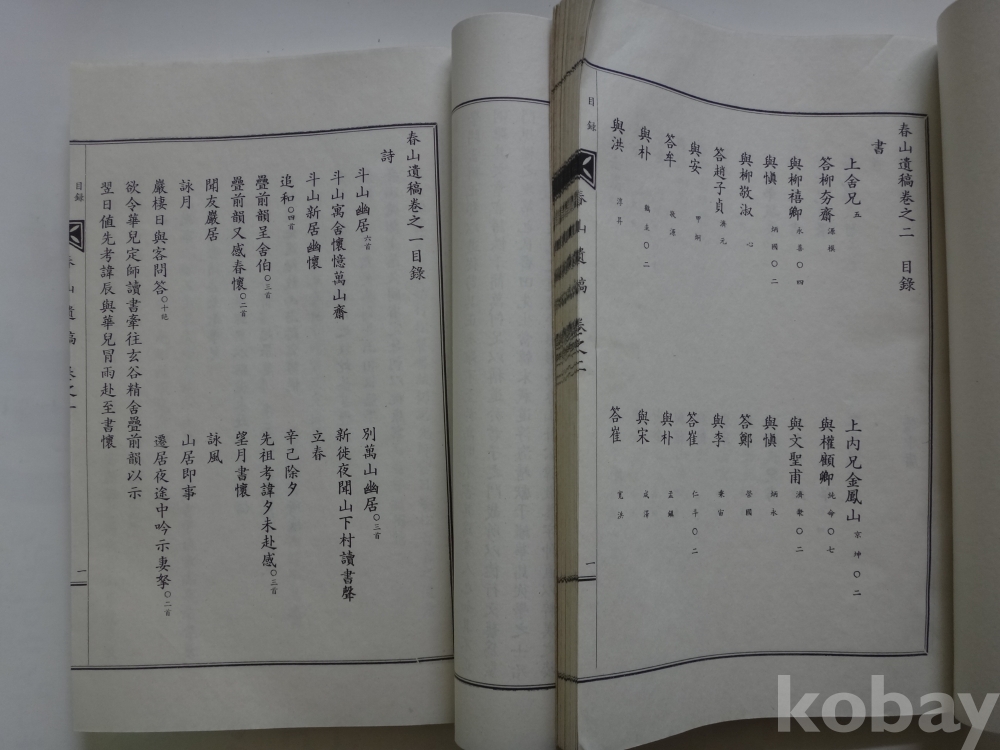 春山遺稿卷之二 目錄
書
上舍兄 五
上內兄金鳳山 京坤〇二
答柳夯齋
與權顧卿 純命〇七
與柳禧卿 永善〇四
與文聖甫 濟衆〇二
與愼 炳國〇二
與愼 炳永
與柳敬淑 心
答鄭 榮國
答趙子貞 濟元
與李 秉宙
與安
答崔 仁斗〇二
答牟
與朴 孟鎭
與朴 鶴來〇二
與宋
與洪 淳昇
答崔 寬洪
目錄
春山遺稿 卷之二
一
春山遺稿卷之一目錄
詩
斗山幽居 六首
別萬山幽居 〇三首
斗山寓舍懷憶萬山齋
新徙夜聞山下村讀書聲
斗山新居幽懷
立春
追和 〇四首
辛己除夕
疊前韻呈舍伯 〇三首
先祖考諱夕未赴感 〇三首
疊前韻又感春懷 〇二首
望月書懷
閒友嚴居
詠風
詠月
山居卽事
巖棲日與客問答 〇十絶
遷居夜途中吟示妻孥 〇二首
欲令華兒定師讀書牽往玄谷精舍疊前韻以示
翌日値先考諱辰與華兒冒雨赴至書懷
目錄
春山遺稿 卷之一
一
kobay